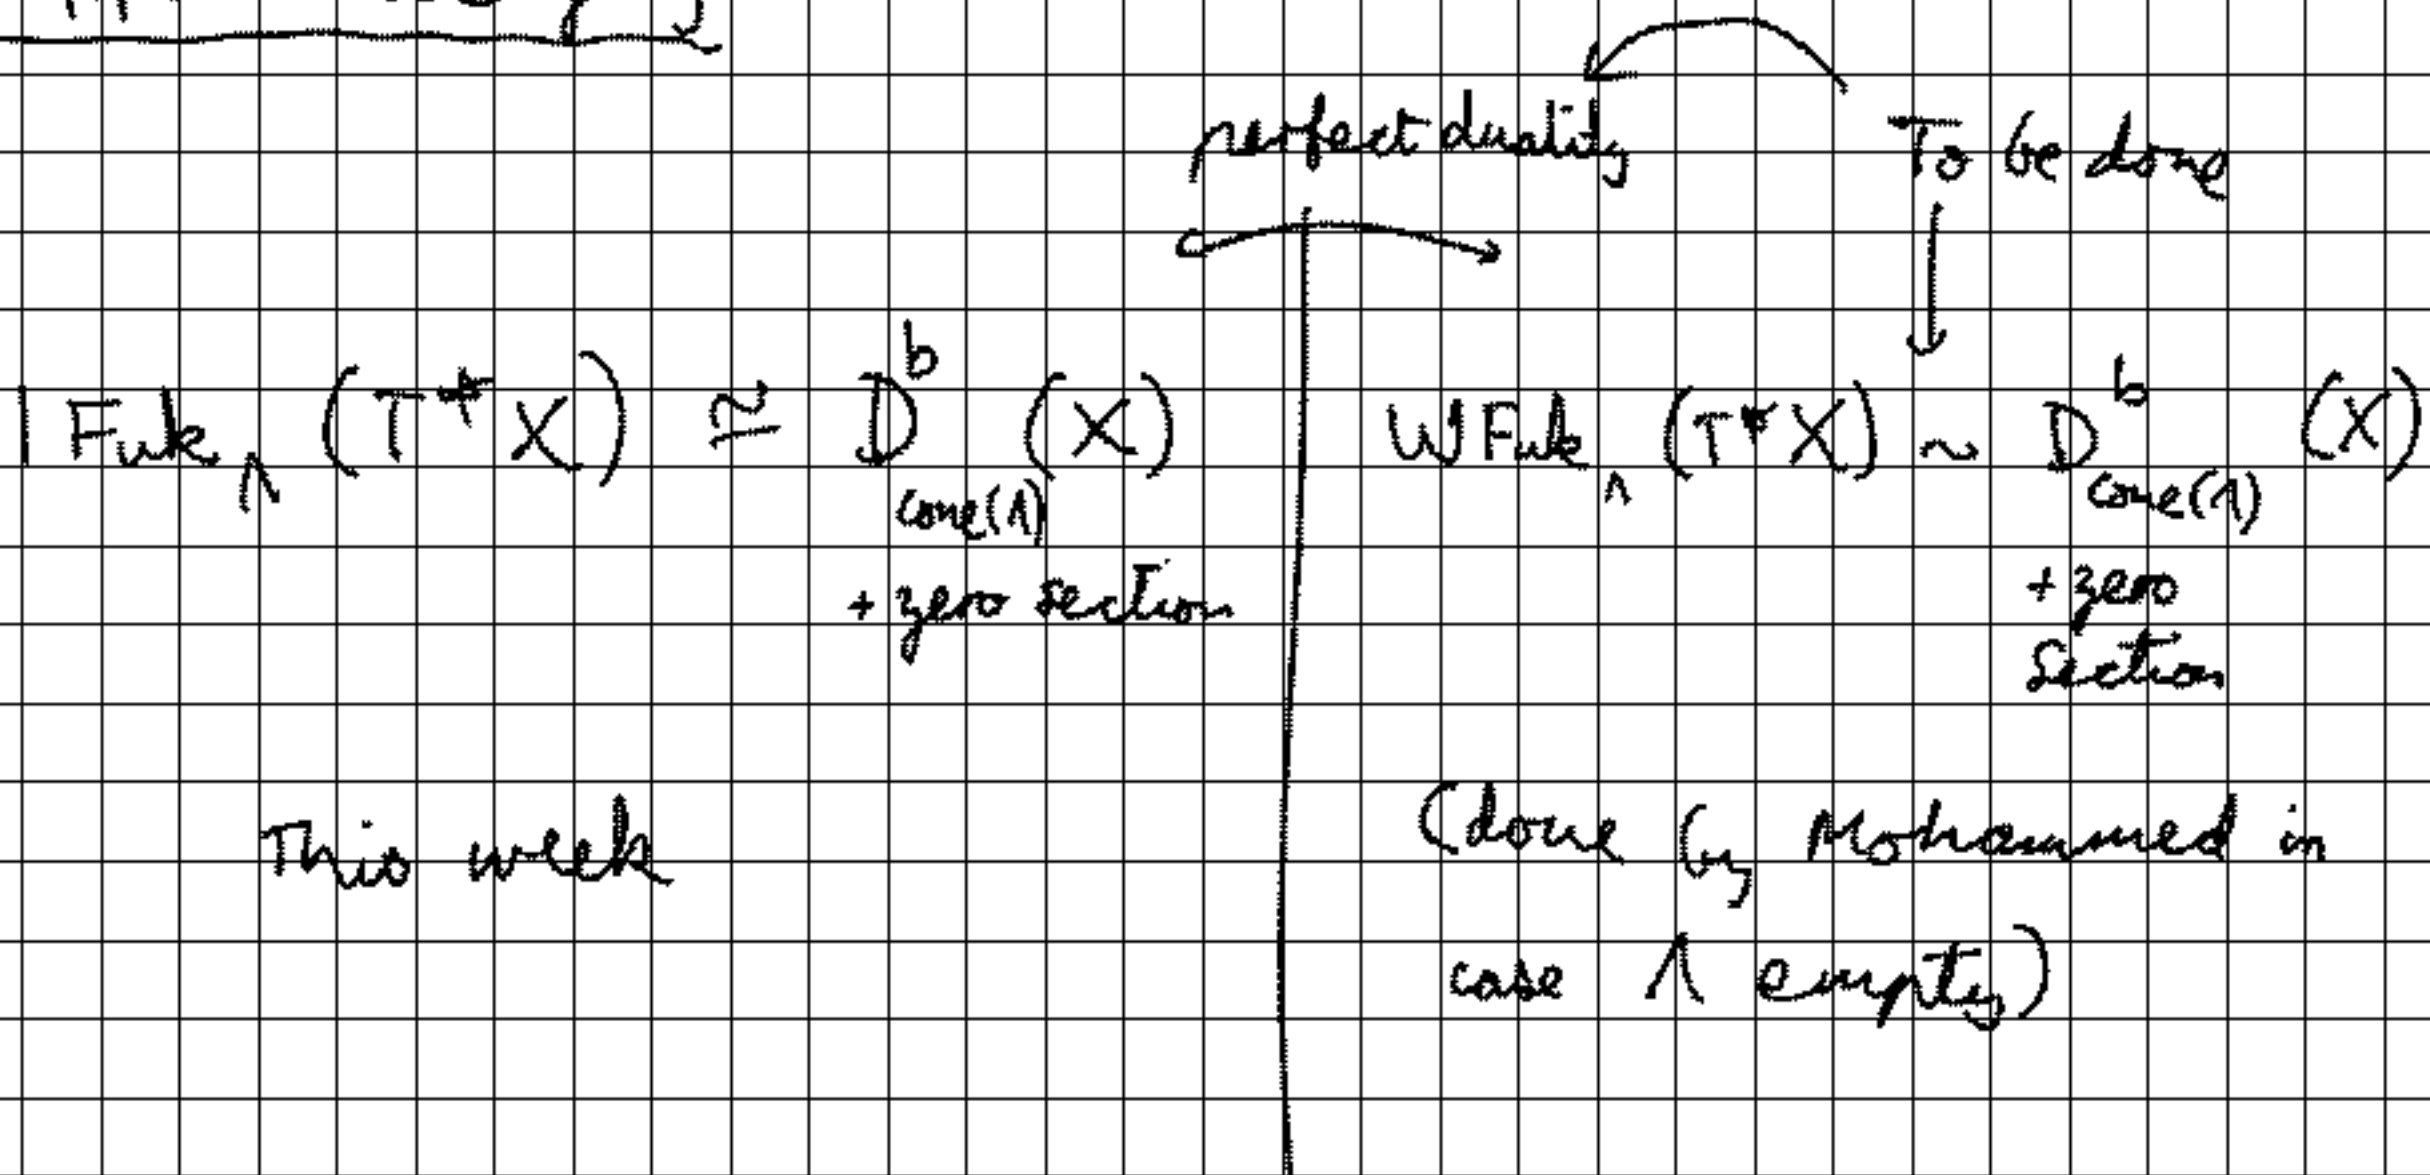 perfect duality
To be done
Fuk_Λ (T*X) ≅ D^b_{cone(Λ) + zero section} (X)
WFuk_Λ (T*X) ~ D^b_{cone(Λ) + zero section} (X)
This week
(done by Mohammed in
case Λ empty)